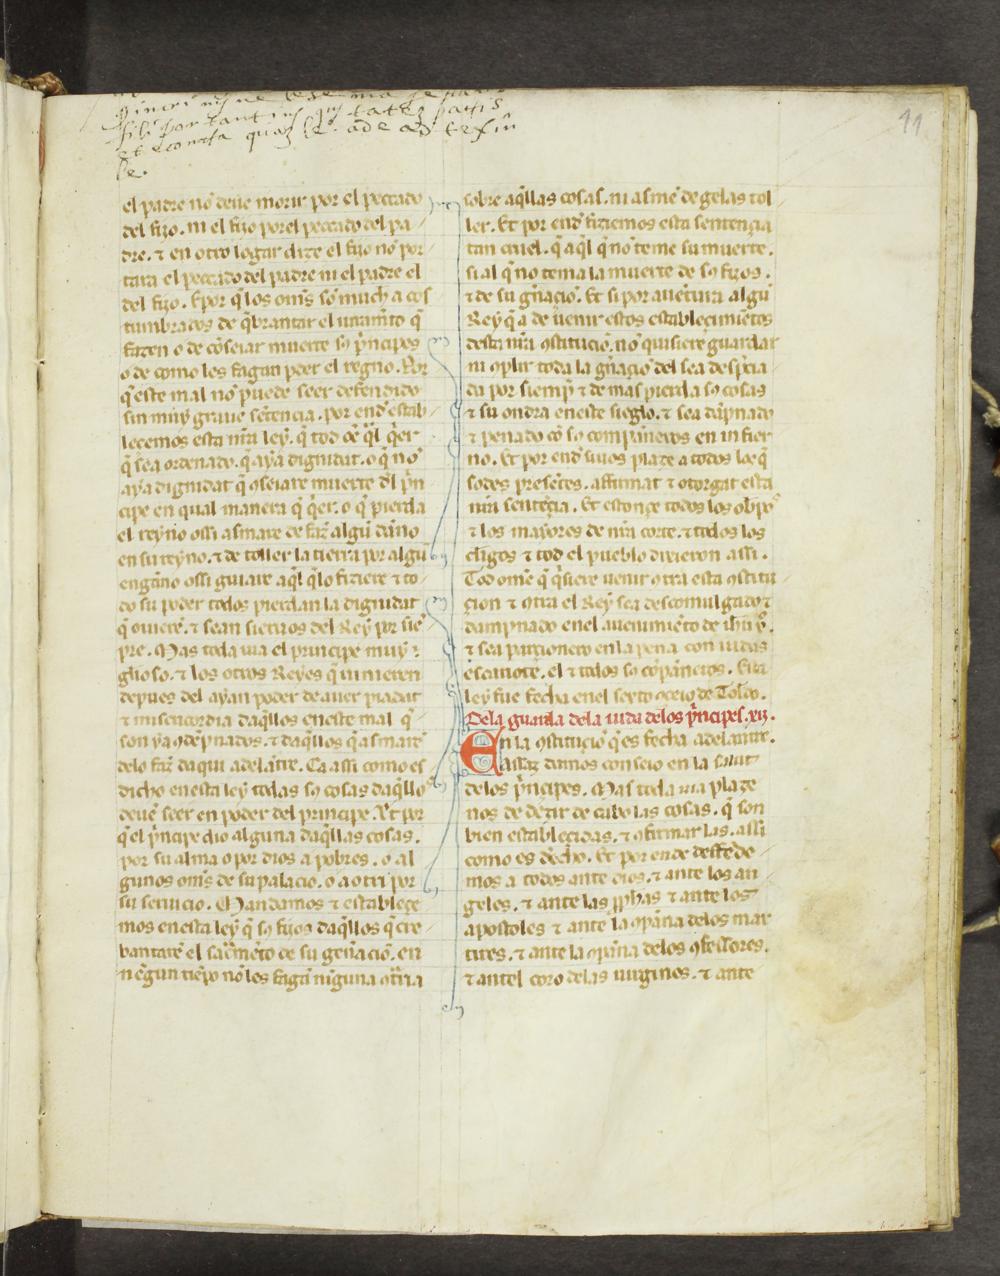 11
el padre no deue morir por el peccado
del fijo. ni el fijo por el peccado del pa
dre. ⁊ en otro logar dize el fijo no por
tara el peccado del padre ni el padre el
del fijo. E por q̃ los om̃s so much a cos
tumbrados de q̃brantar el
fazen o de cõseiar muerte so p̃ncipes
o de como les fagan pder el regno. Por
q̃ este mal nõ puede seer defendido
sin muy graue sẽtencia. por end estab
lecemos esta nr̃a ley. q̃ tod oẽ q̃l q̃er
q̃ sea ordenado. q̃ aya dignidat. o q̃ no
aya dignidat q̃ ↄseiare muerte dl p̃n
cipe en qual manera q̃ q̃er. o q̃ pierda
el reyno o ssi asmare de faz̃ algũ daño
en su reyno. ⁊ de toller la tierra por algũ
engaño o ssi guiare aq̃l q̃ lo fiziere ⁊ to
do su poder todos pierdan la dignidat
q̃ ouierẽ. ⁊ sean sieruos del Rey por siẽ
pre. Mas toda uia el principe muy
glioso. ⁊ los otros Reyes q̃ uinieren
depues del ayan poder de auer piadat
⁊ misericordia daq̃llos en este mal q̃
son ya ↄdẽpnados. ⁊ daq̃llos q̃ asmarẽ
delo faz̃ daqui adelãtre. Ca assi como es
dicho en esta ley todas so cosas daq̃llo
deuẽ seer en poder del principe. Et por
q̃ el p̃ncipe dio alguna daq̃llas cosas.
por su alma o por dios a pobres. o al
gunos om̃s de su palacio. o a otri por
su seruicio. Mandamos ⁊ establece
mos en esta ley q̃ so fijos daq̃llos q̃ cre
bantarẽ el sac̃mẽto de su gẽnaciõ. en
nẽgun tiẽpo nõ les fagã nĩguna ↄtr̃ia
sobre aq̃llas cosas. ni asmẽ de gelas tol
ler. Et por end fiziemos esta sentencia
tan cruel. q̃ aq̃l q̃ no teme su muerte.
si al q̃ no tema la muerte de so fijos.
⁊ de su gñaciõ. Et si por auẽtura algũ
Rey q̃ a de uenir estos establecimiẽtos
desta nr̃a ↄstituciõ. nõ quisierẽ guardar
ni ↄplir toda la gñaciõ del sea desp̃cia
da por siemp̃ ⁊ de mas pierda so cosas
⁊ su ondra en este sieglo. ⁊ sea dãpnado
⁊ penado cõ so compãneros en infier
no. Et por end si uos plaze a todos los q̃
sodes presẽtes. affirmat ⁊ otorgat esta
nr̃a sentẽcia. Et estonçe todos los obp̃o
⁊ los mayores de nr̃a corte. ⁊ todos los
cl̃igos ⁊ tod el pueblo dixieron assi.
Tod omẽ q̃ q̃siere uenir ↄtra esta ↄstitu
çion ⁊ ↄtra el Rey sea descomulgado ⁊
dampnado en el auenimiẽto de ih̃u x̃p̃o.
⁊ sea parçionero en la pena con iudas
escariote. el ⁊ todos so cõpãneros. Esta
ley fue fecha en el sexto de Toledo.
Dela guarda dela uida delos p̃ncipes. xij.
En la ↄstituciõ q̃ es fecha adelantre.
assaz damos conseio en la salut
delos p̃ncipes. Mas toda uia plaze
nos de dezir de cabo las cosas. q̃ son
bien establecidas. ⁊ ↄfirmar las. assi
como es dicho. Et por ende deffede
mos a todos ante dios. ⁊ ante los an
geles. ⁊ ante las pp̃has ⁊ ante los
apostoles ⁊ ante la ↄpãna delos mar
tires. ⁊ ante la ↄpãna delos ↄfessores.
⁊ antel coro delas uirgines. ⁊ ante